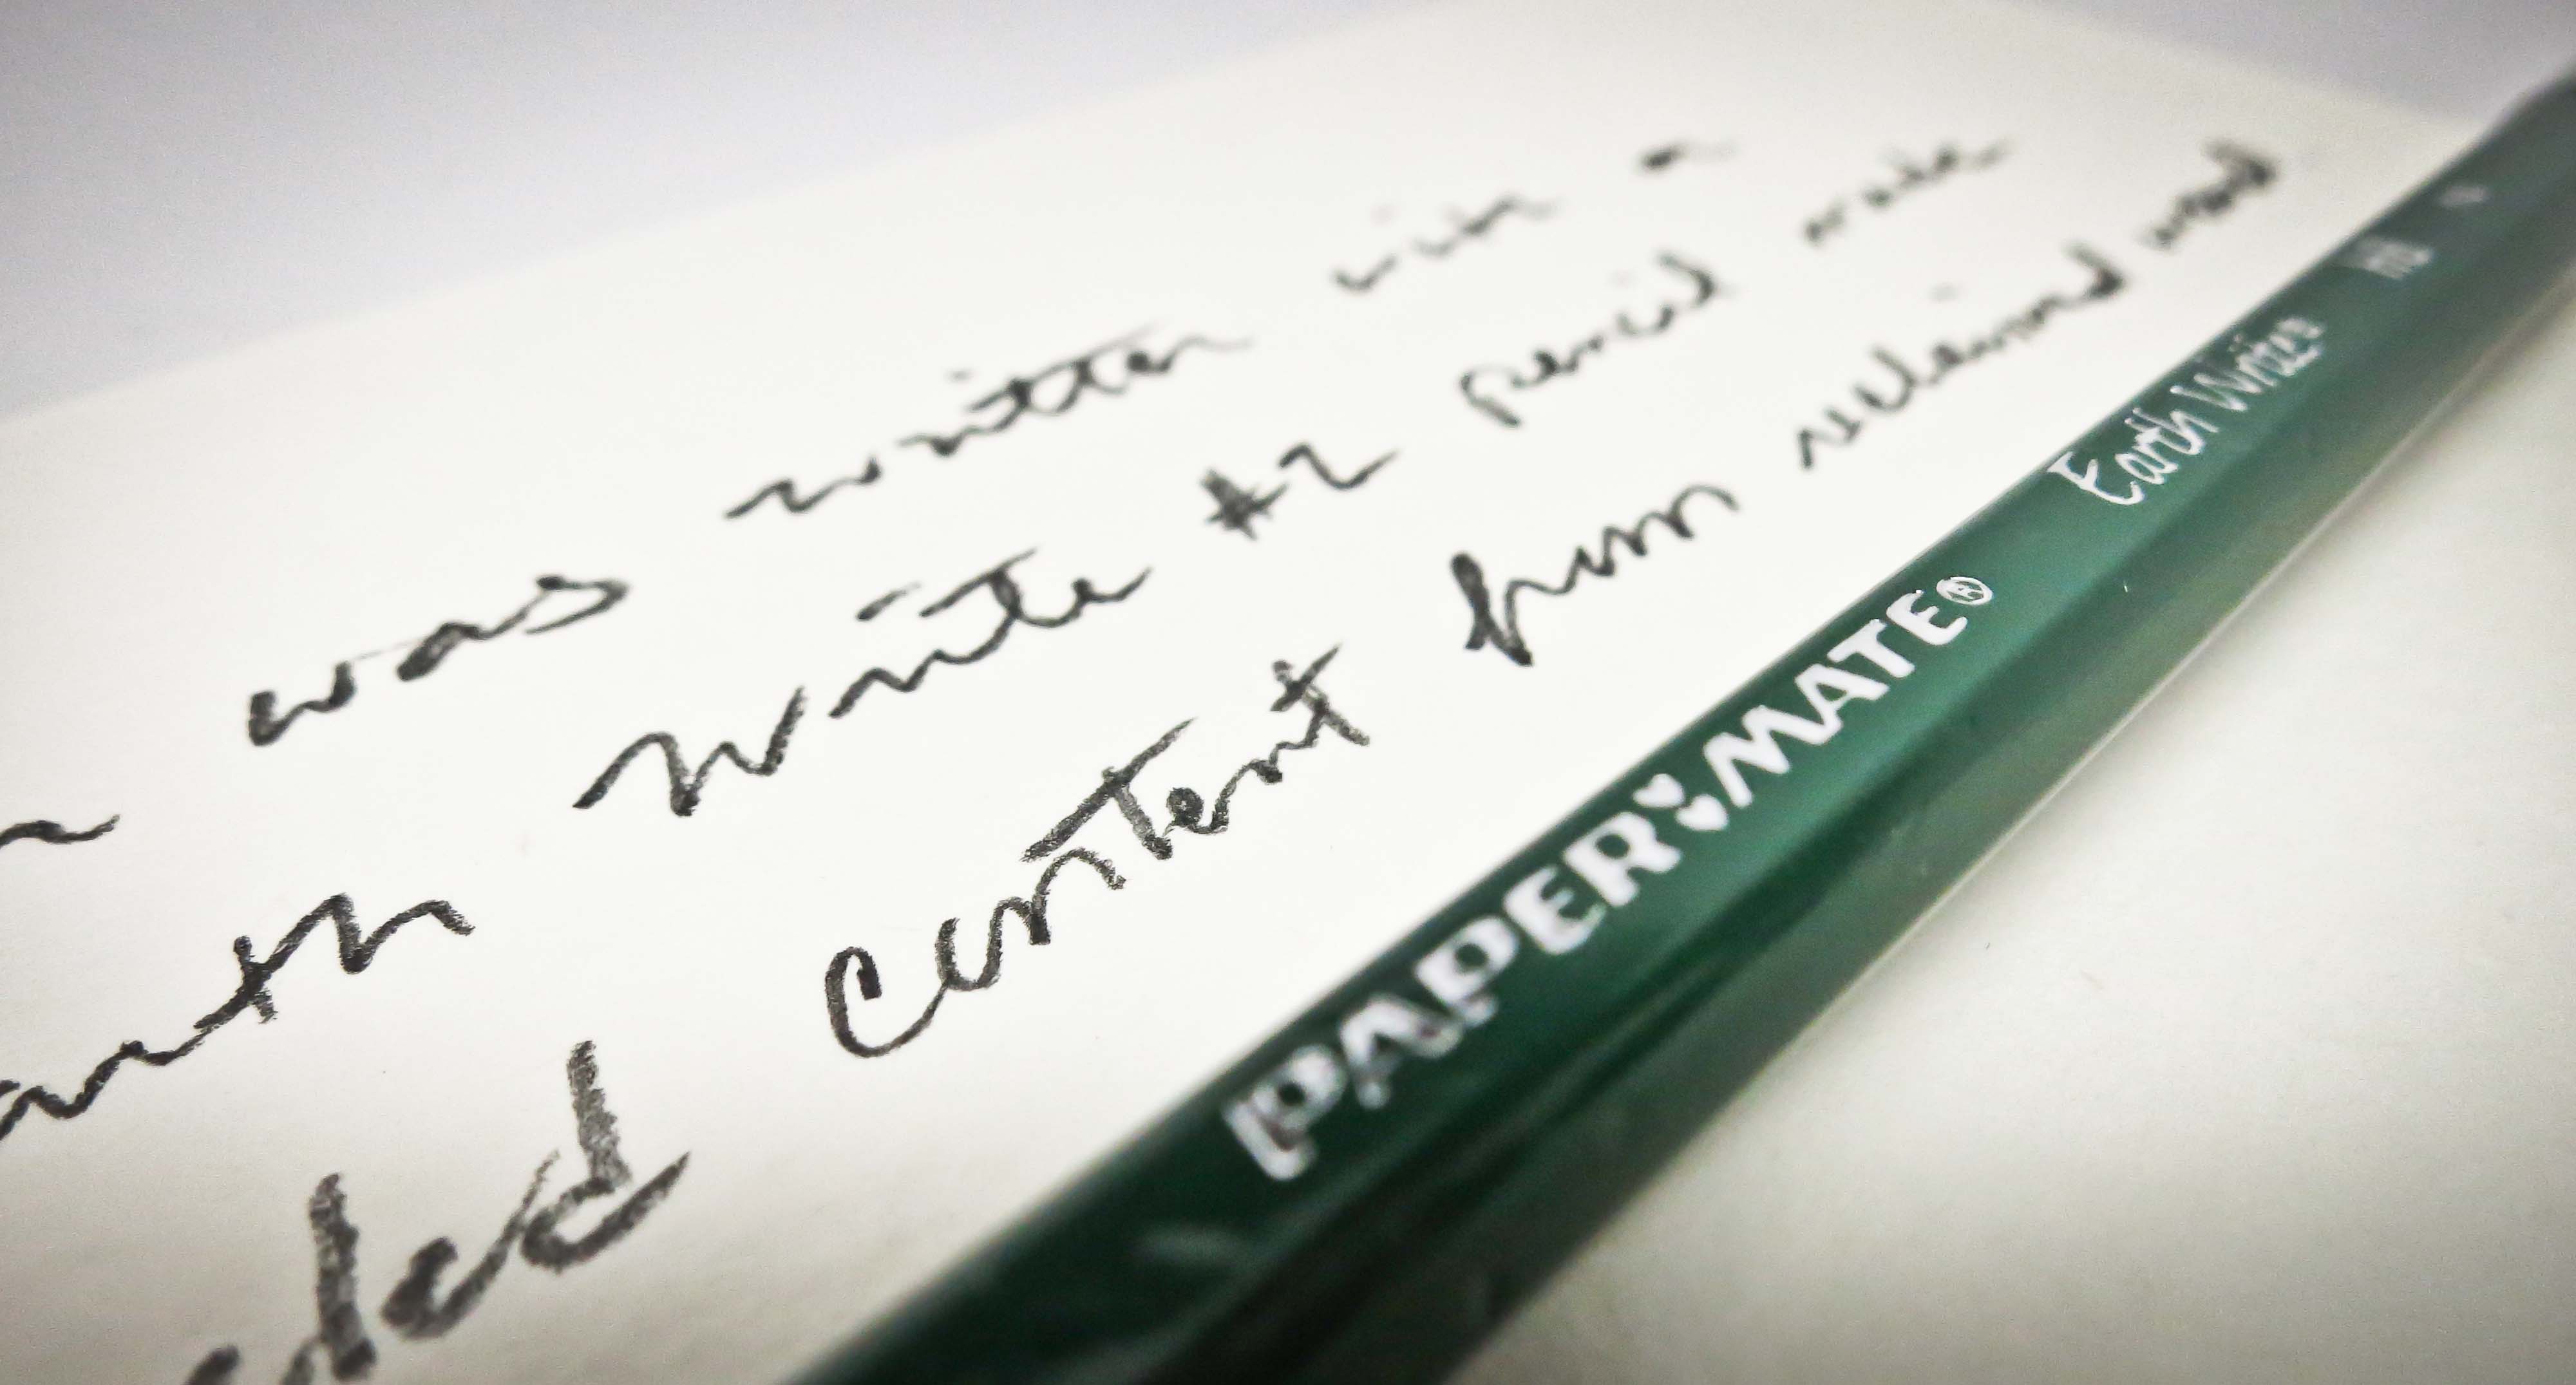 was written with a
arth Write #2 pencil made
cled content from reclaimed wood
PAPER MATE® Earth Write® HB